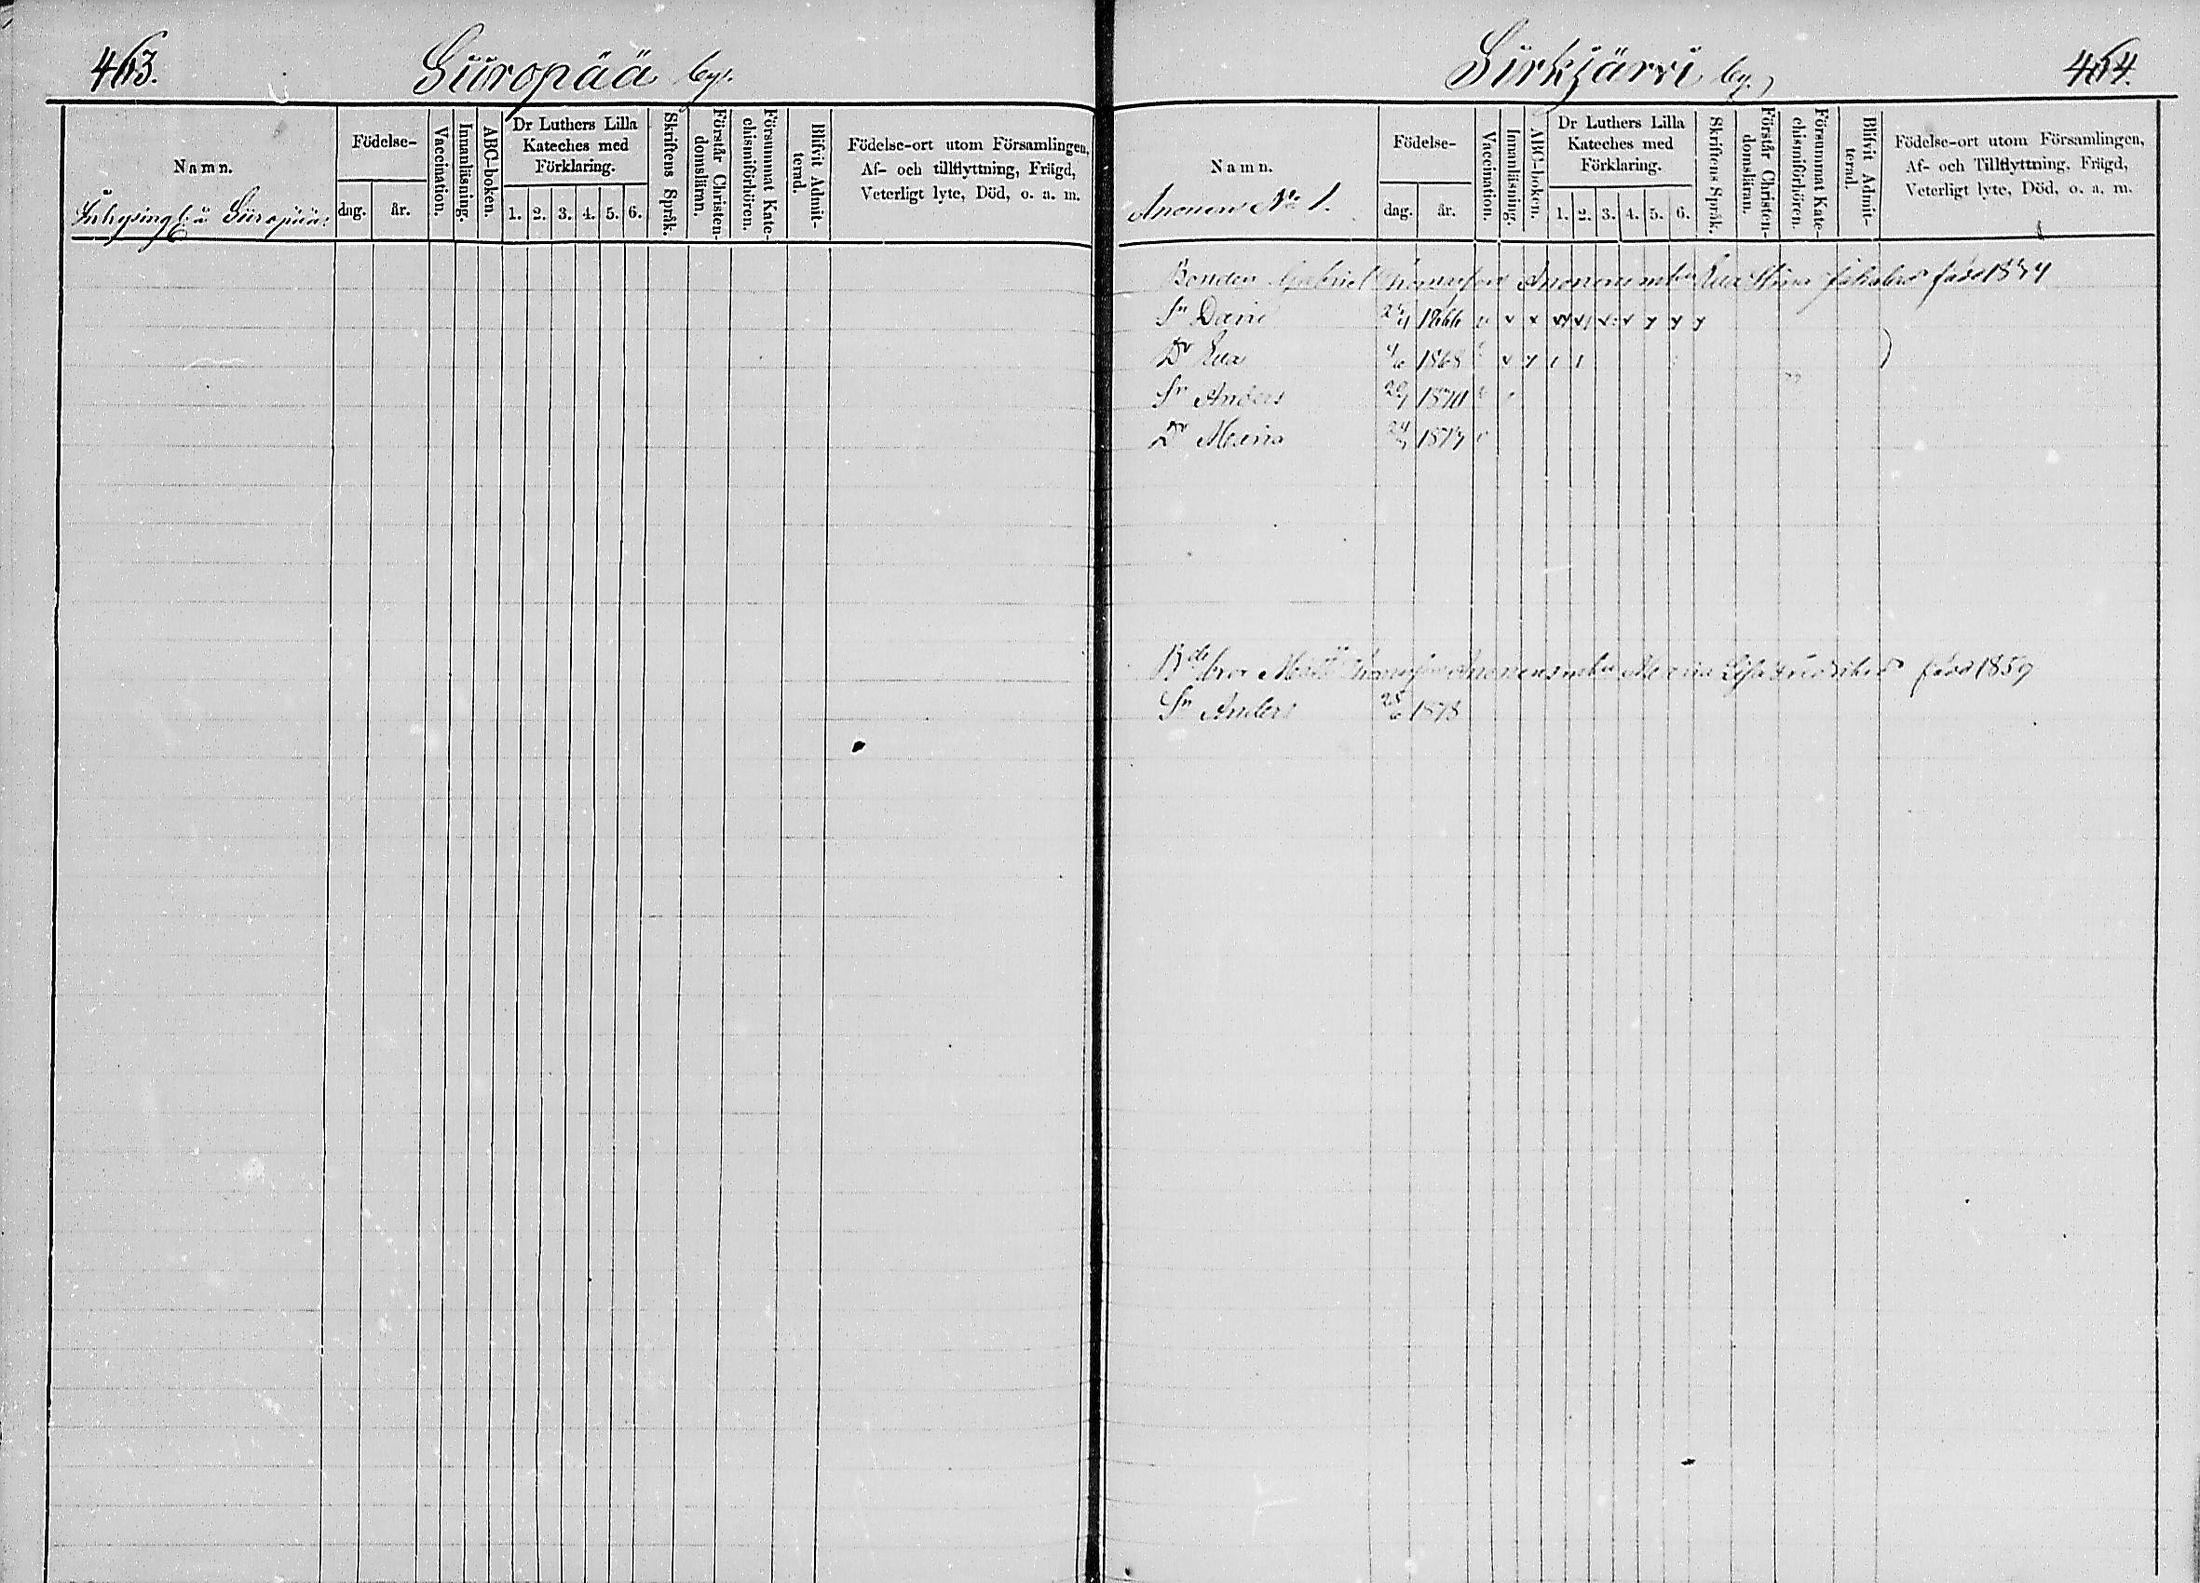 463.
Siiropää by.
Namn.
Inhysing. å Siiropää:
Födelse-
dag.
år.
Vaccination.
Innanläsning.
ABC-boken.
Dr Luthers Lilla
Kateches med
Förklaring.
1. 2. 3. 4. 5. 6.
Skriftens Språk.
Förstår Christen-
domsläran.
Försummat Kate-
chismiförhören.
Blifvit Admit-
terad.
Födelse-ort utom Församlingen,
Af- och tillflyttning, Frägd,
Veterligt lyte, Död, o. a. m.
Sirkjärvi by.
464.
Namn.
Anonen No 1.
Födelse-
dag.
år.
Vaccination.
Innanläsning.
ABC-boken.
Dr Luthers Lilla
Kateches med
Förklaring.
1. 2. 3. 4. 5. 6.
Skriftens Språk.
Förstår Christen-
domsläran.
Försummat Kate-
chismiförhören.
Blifvit Admit-
terad.
Födelse-ort utom Församlingen,
Af- och Tillflyttning, Frägd,
Veterligt lyte, Död, o. a. m.
Bonden Gabriel Eva Stina född
Sn 1866
Dr Eva 1868
Sn Anders 1870
Dr Maria
Maria Lisa född 1859
Sn Anders 28/6 1878